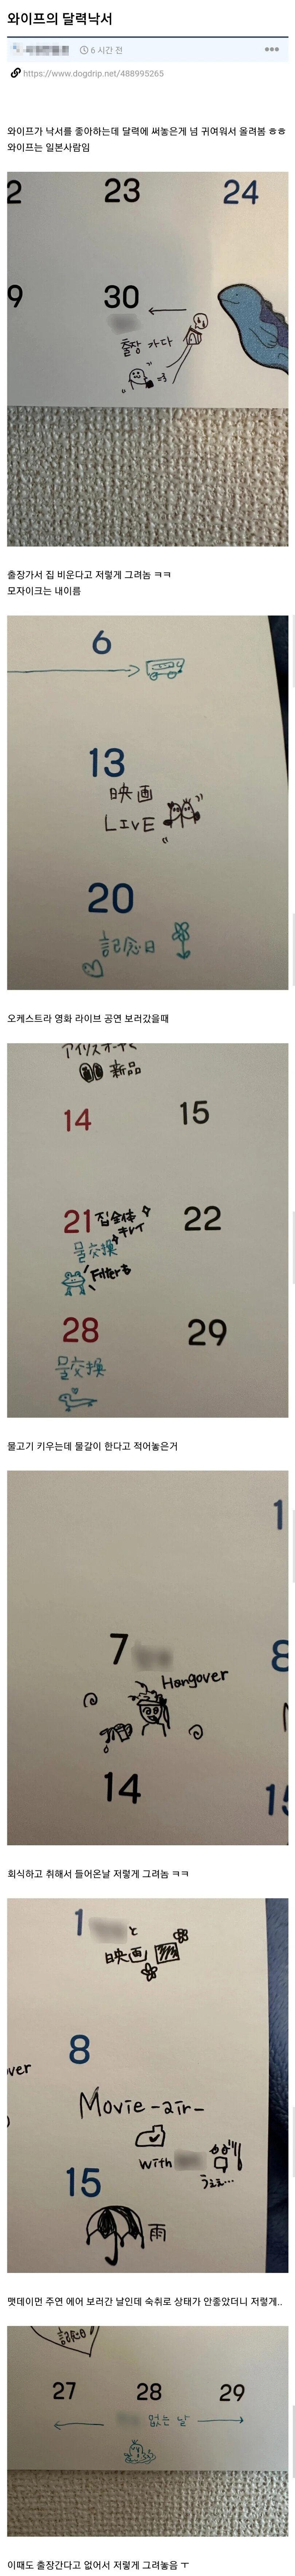 와이프의 달력낙서
6 시간 전
https://www.dogdrip.net/488995265
와이프가 낙서를 좋아하는데 달력에 써놓은게 넘 귀여워서 올려봄 ㅎㅎ
와이프는 일본사람임
2 23 24
9 30
출장 가다
출장가서 집 비운다고 저렇게 그려놈 ㅋㅋ
모자이크는 내이름
6
13
映画
LIVE
20
記念日
오케스트라 영화 라이브 공연 보러갔을때
新品
14 15
21 집全体 22
キレイ
물交換
Filterも
28 29
물交換
물고기 키우는데 물갈이 한다고 적어놓은거
1
7 8
Hangover
14 15
회식하고 취해서 들어온날 저렇게 그려놈 ㅋㅋ
1 と
映画
8
over
Movie -air-
with
うぇぇ...
15
雨
맷데이먼 주연 에어 보러간 날인데 숙취로 상태가 안좋았더니 저렇게..
記念日
27 28 29
없는 날
이때도 출장간다고 없어서 저렇게 그려놓음 ㅜ